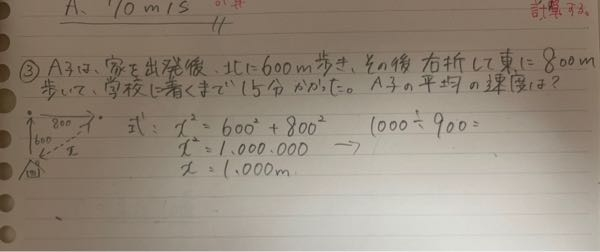 A. 70m/s
計算する。
③ A子は、家を出発後、北に600m歩き、その後右折して東に800m
歩いて、学校に着くまで15分かかった。A子の平均の速度は?
800
600
x
式: x² = 600² + 800²
x² = 1.000.000
x = 1.000m
→ 1000 ÷ 900 =